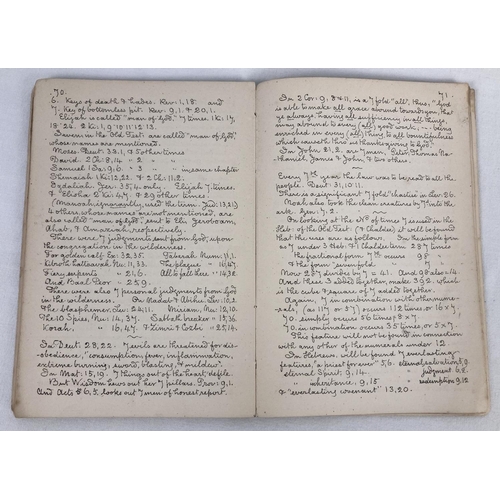 70.
6. Keys of death & hades. Rev: 1,18. and
7. Key of bottomless pit. Rev: 9,1. & 20,1.
Elijah is called "man of God," 7 times. 1 Ki: 17,
18 & 24. 2 Ki: 1, 9. 10. 11. 12. 13.
Seven in the Old Test: are called "man of God,"
whose names are mentioned.
Moses. Deut: 33,1. & 5 other times
David. 2 Ch: 8,14. " 2 " "
Samuel 1 Sa; 9,6. " 3 " " in same chapter
Shemaiah 1 Ki: 12,22. & 2 Ch: 11,2.
Igdaliah. Jer: 35,4. only. Elijah 7. times.
& Elisha 2 Ki: 4,7. & 29 other times.
(Manoah ignorantly used the term Jud: 13,21)
4 others, whose names are not mentioned, are
also called "man of God," sent to Eli, Jeroboam,
Ahab, & Amaziah, respectively.
There were 7 judgments sent from God, upon
the congregation in the wilderness.
For golden calf Ex: 32,35. Taberah Num: 11,1.
Kibroth hattaavah Nu: 11,33. The plague " 16,47.
Fiery serpents " 21,6. All to fall here " 14,32.
And Baal Peor " 25,9.
There were also 7 personal judgments from God
in the wilderness. On Nadab & Abihu Lev: 10,2.
The blasphemer Lev: 24,11. Miriam, Nu: 12,10.
The 10 Spies, Nu: 14,37. Sabbath breaker " 15,36.
Korah, " 16,47. & Zimri & Cozbi " 25,14.
In Deut: 28,22. 7 evils are threatened for dis-
obedience, "consumption, fever, inflammation,
extreme burning, sword, blasting, & mildew."
In Mat: 15,19. 7 things out of the heart, defile.
But Wisdom hews out her 7 pillars. Prov: 9,1.
And Acts 6,5. looks out 7 men of honest report.
71.
In 2 Cor: 9, 8 & 11, is a 7 fold "all," thus, "God
is able to make all grace abound toward you, that
ye always, having all sufficiency in all things,
may abound to every (all) good work, - being
enriched in every (all) thing to all bountifulness
which causeth thro' us thanksgiving to God."
In John 21,2. are 7 men, Peter, Thomas, Na-
thaniel, James & John, & two others.
Every 7th year the law was to be read to all the
people. Deut: 31,10 11.
There is a significant 7 fold chastise in Lev: 26.
Noah also took the clean creatures by 7s into the
ark. Gen: 7,2.
On looking at the No of times 7 is used in the
Heb: of the Old Test: (& Chaldee) it will be found
that the uses are as follows. In the simple form
as 7 under 3 Heb: & 1 Chaldee term 287 times
the fractional form 7th occurs 98 "
& the form "sevenfold" " 7 "
Now 287 divides by 7 = 41. And 98 also = 14.
And these 3 added together, make 392, which is
the cube & square of 7 added together.
Again, 7 in combination with other nume-
rals, (as 117 or 87) occurs 112 times, or 16 x 7,
70. simply occurs 56 times or 8 x 7
70. in combination occurs 35 times, or 5 x 7.
This will not be found in connection
with any other of the numerals under 12.
In Hebrews, will be found 7 everlasting
features, "a priest for ever" 5,6. eternal salvation 5,9
eternal Spirit; 9,14. " judgment. 6,2.
" inheritance, 9,15. " redemption 9,12
& "everlasting covenant" 13,20.